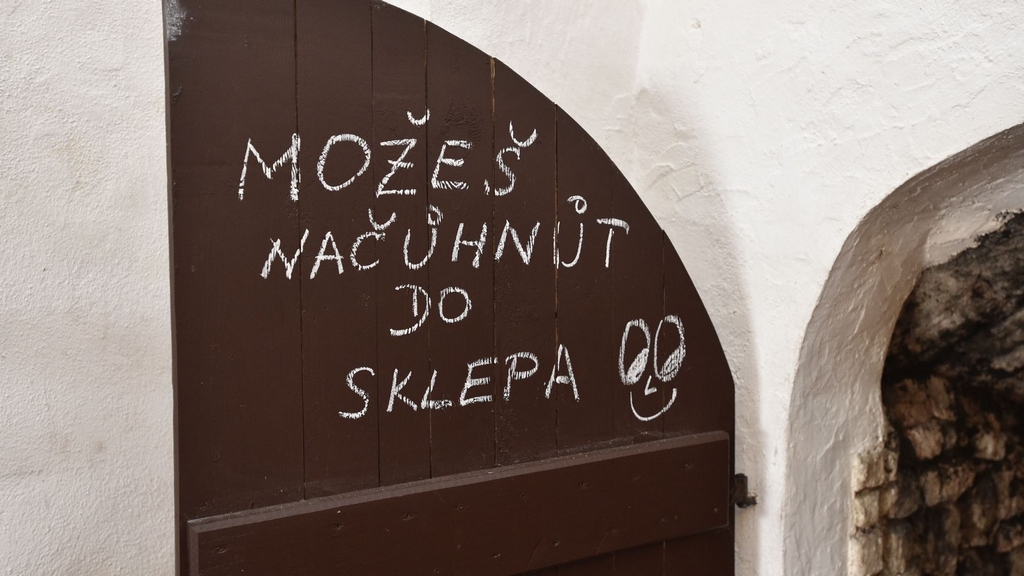 MOŽEŠ
NAČŮHNŮT
DO
SKLEPA